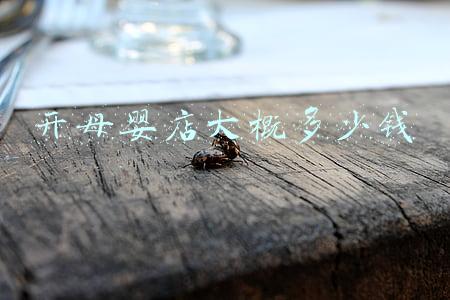 开母婴店大概多少钱